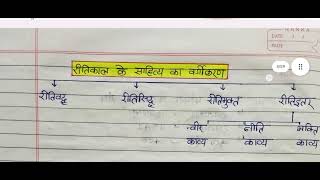 RANKA
DATE
PAGE
रीतिकाल के साहित्य का वर्गीकरण
रीतिबद्ध रीतिसिद्ध रीतिमुक्त रीतिइतर
वीर नीति भक्ति
काव्य काव्य काव्य